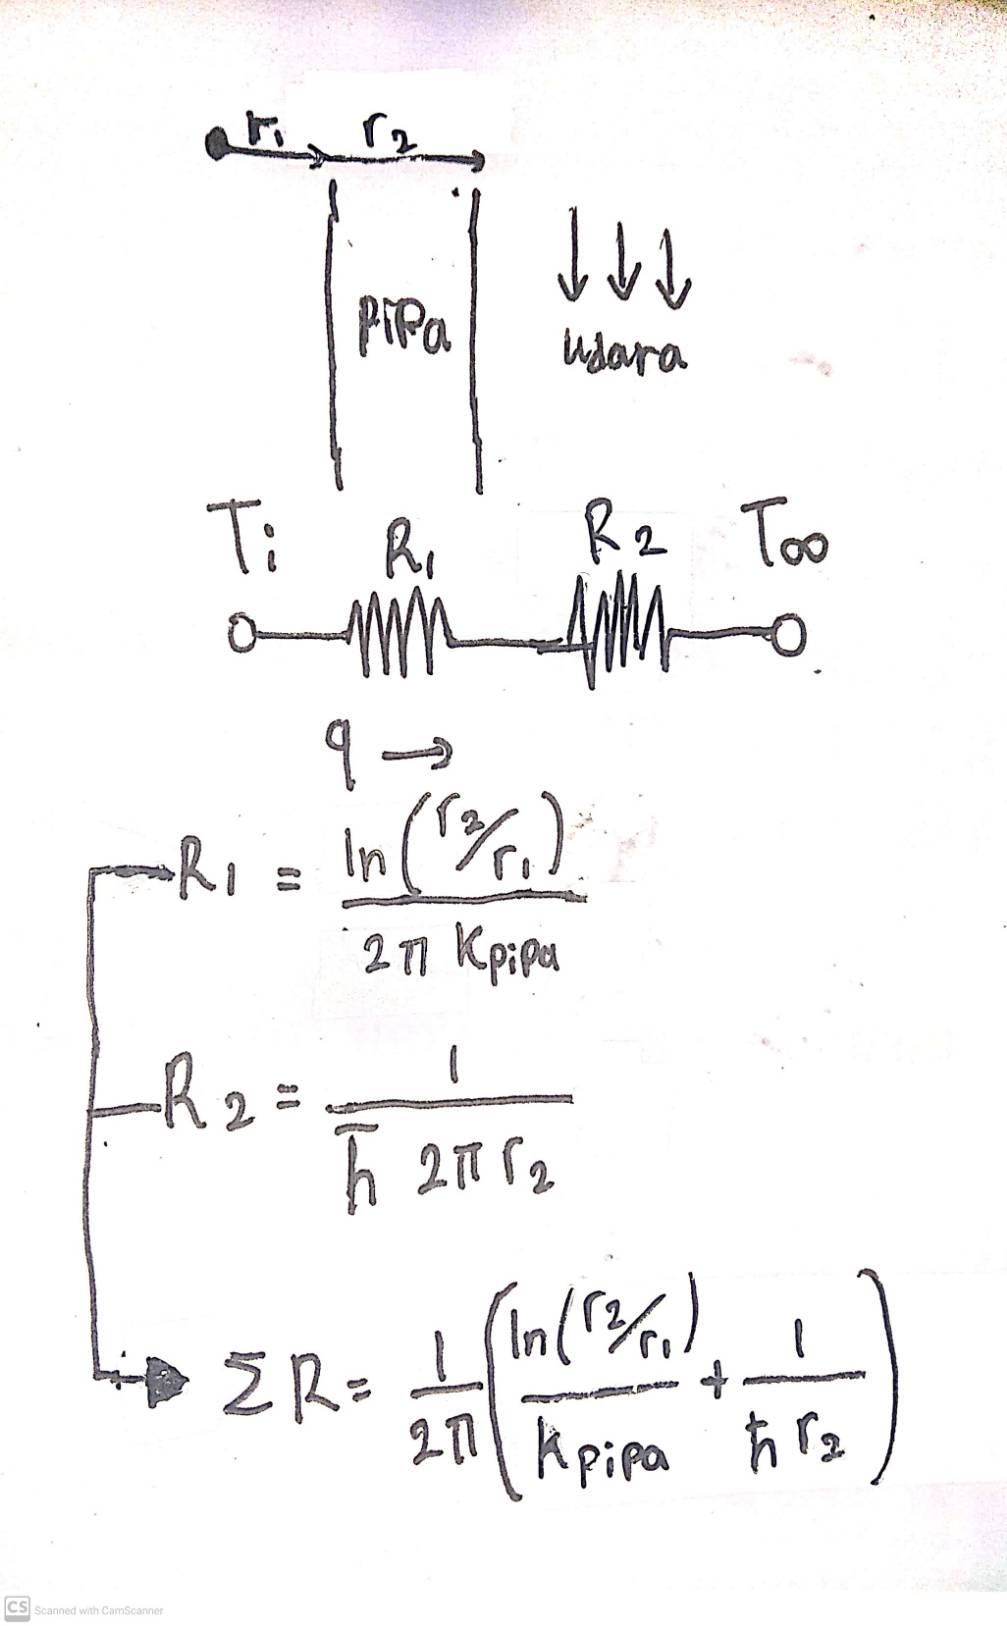 r₁ r₂
pipa
udara
Ti R₁ R₂ T∞
q →
R₁ = ln(r₂/r₁)
2π Kpipa
R₂ = 1
h̄ 2π r₂
ΣR = 1/2π (ln(r₂/r₁)/Kpipa + 1/h̄ r₂)
CS Scanned with CamScanner